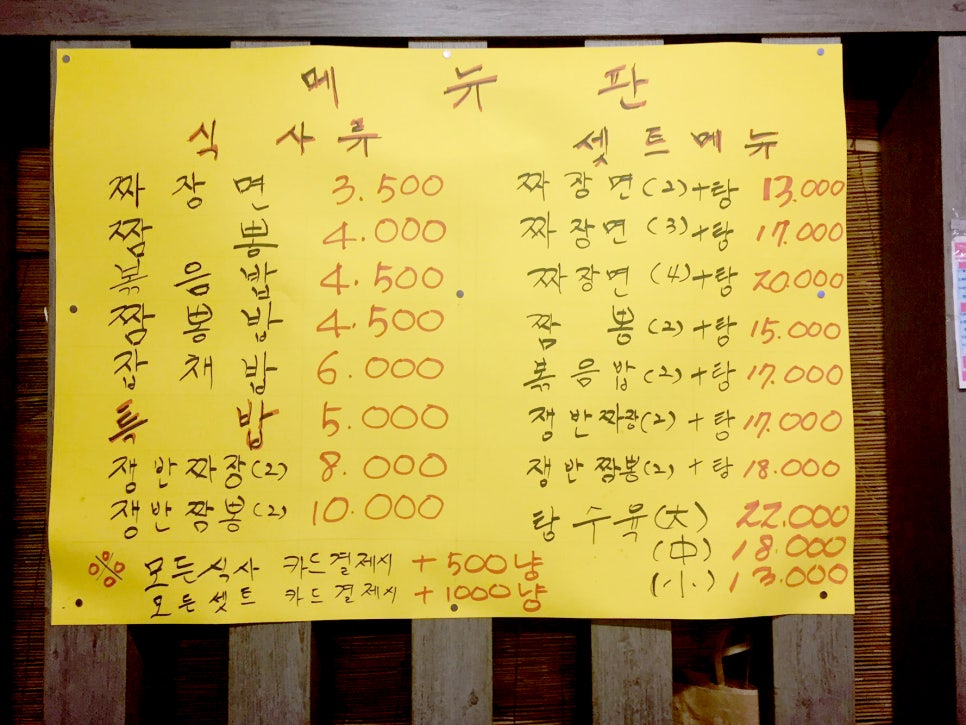 메뉴판
식사류
짜장면 3.500
짬뽕 4.000
볶음밥 4.500
짬뽕밥 4.500
잡채밥 6.000
특밥 5.000
쟁반짜장(2) 8.000
쟁반짬뽕(2) 10.000
셋트메뉴
짜장면(2)+탕 13.000
짜장면(3)+탕 17.000
짜장면(4)+탕 20.000
짬뽕(2)+탕 15.000
볶음밥(2)+탕 17.000
쟁반짜장(2)+탕 17.000
쟁반짬뽕(2)+탕 18.000
탕수육(大) 22.000
(中) 18.000
(小) 13.000
※ 모든식사 카드결제시 +500냥
모든셋트 카드결제시 +1000냥